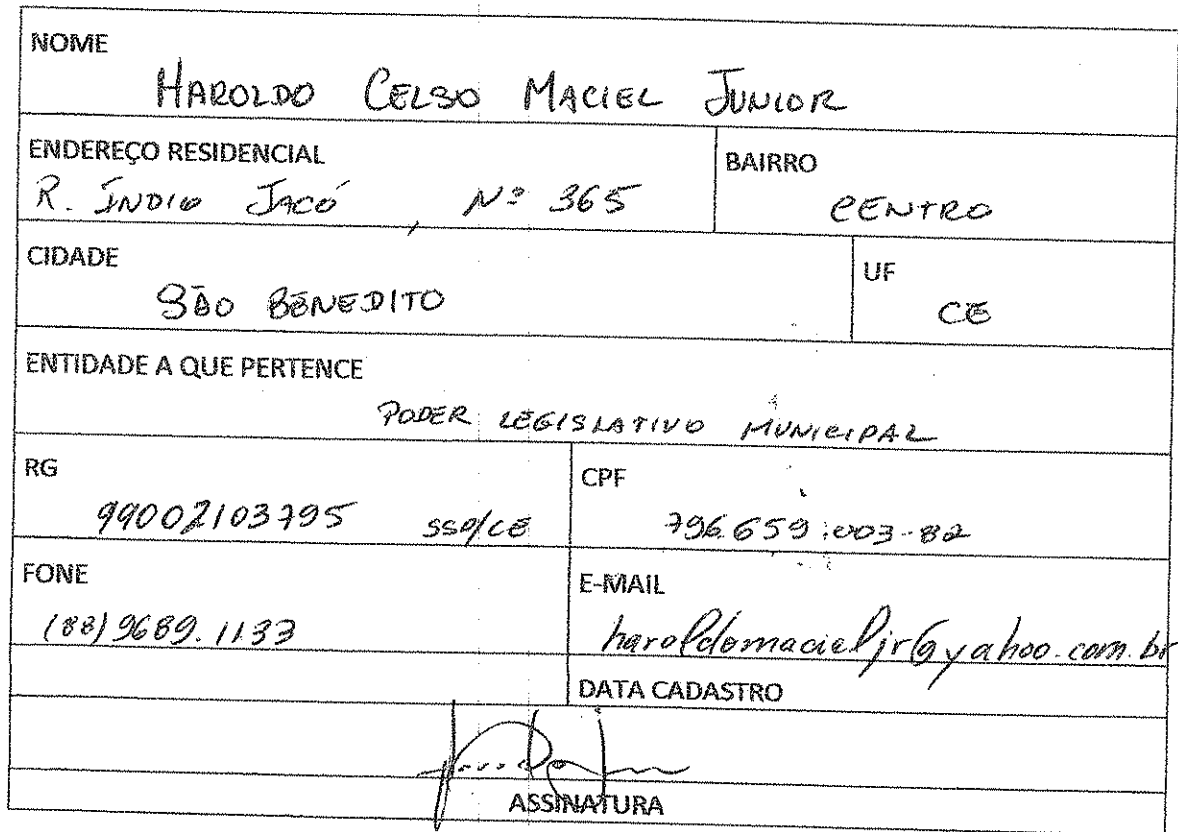 NOME
HAROLDO CELSO MACIEL JUNIOR
ENDEREÇO RESIDENCIAL
R. ÍNDIO JACÓ, Nº 365
BAIRRO
CENTRO
CIDADE
SÃO BENEDITO
UF
CE
ENTIDADE A QUE PERTENCE
PODER LEGISLATIVO MUNICIPAL
RG
99002103795 SSP/CE
CPF
796.659.003-82
FONE
(88) 9689.1133
E-MAIL
haroldomacieljr@yahoo.com.br
DATA CADASTRO
ASSINATURA